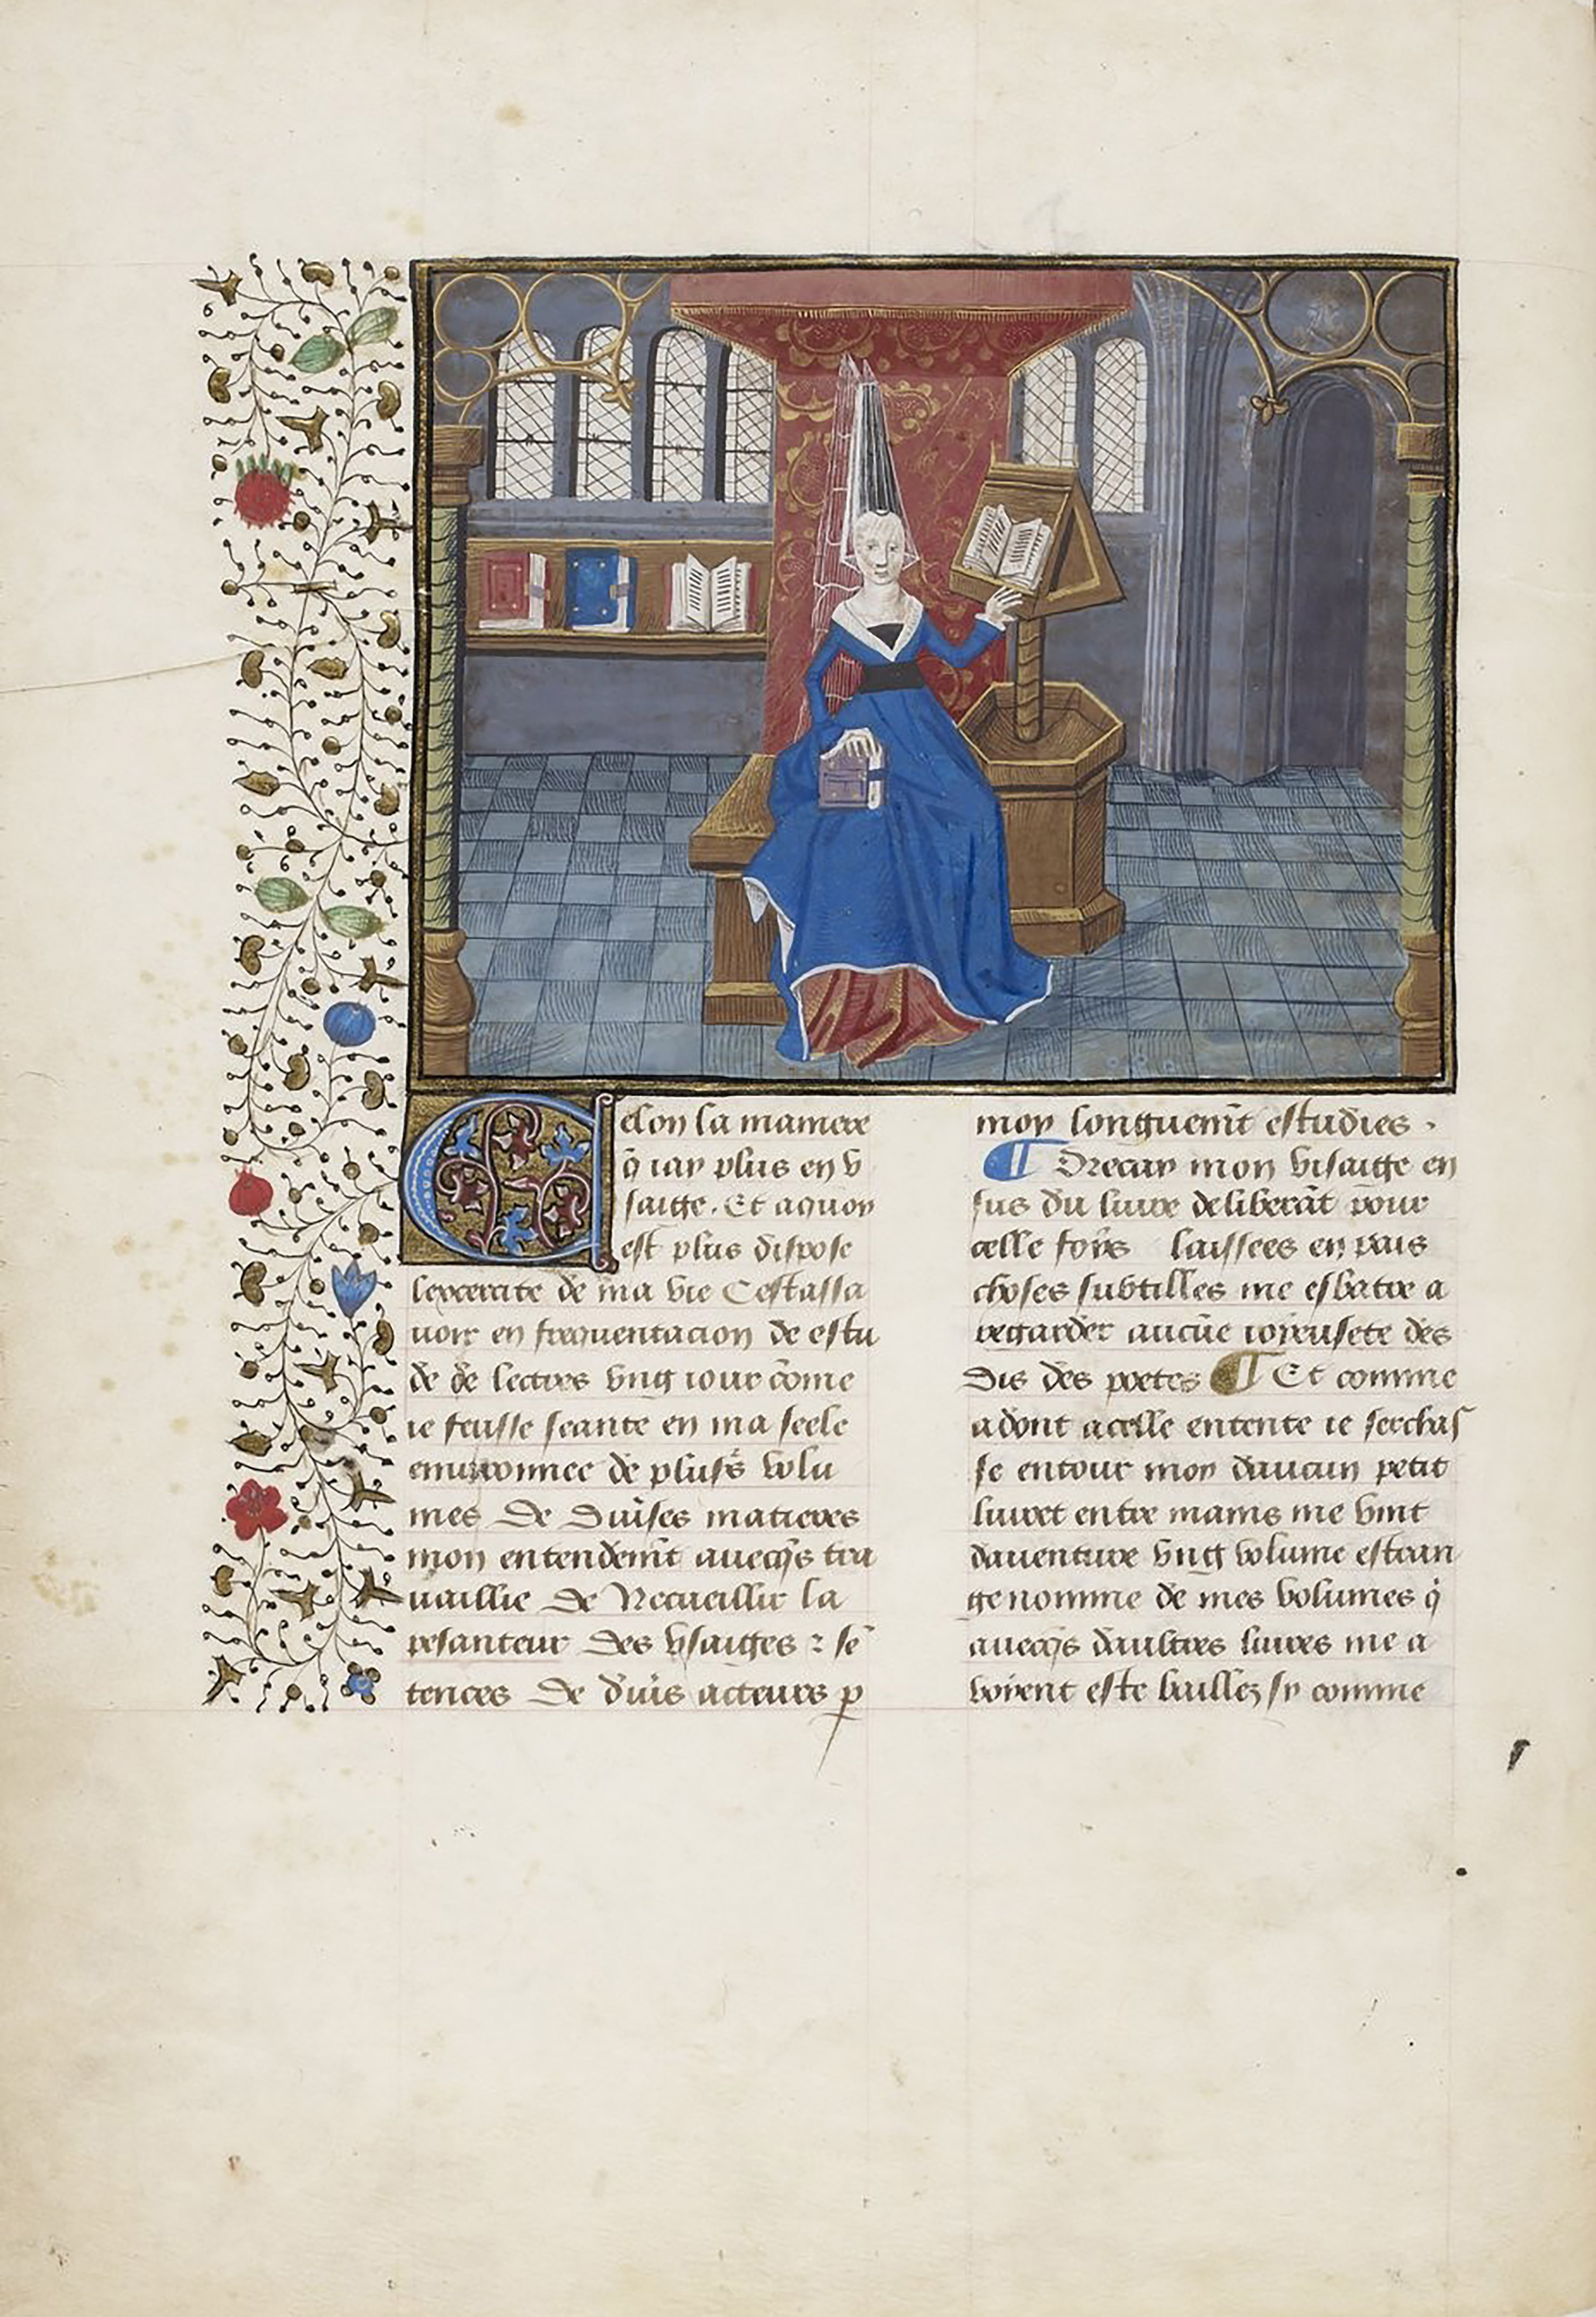 Selon la maniere
q̄ iay plus en v
saige. Et a quoy
est plus dispose
lexcercite de ma vie Cestassa
uoir en frequentacion de estu
de de lectres vng iour cōme
ie feusse seante en ma seele
enuironnee de plusr̄s volu
mes de diuerses matieres
mon entendem̄t auecq̄s tra
uaillie de Recueillir la
pesanteur des vsaiges ⁊ sē
tences de diuers acteurs p
moy longuem̄t estudies.
¶ Drecay mon visaige en
sus du liure deliberāt pour
celle foys laissees en pais
choses subtilles me esbatre a
regarder aucūe ioyeusete des
dis des poetes ¶ Et comme
adont a celle entente ie serchas
se entour moy daucun petit
liuret entre mains me vint
dauenture vng volume estran
ge nomme de mes volumes q̄
auecq̄s daultres liures me a
voyent este baillez sy comme